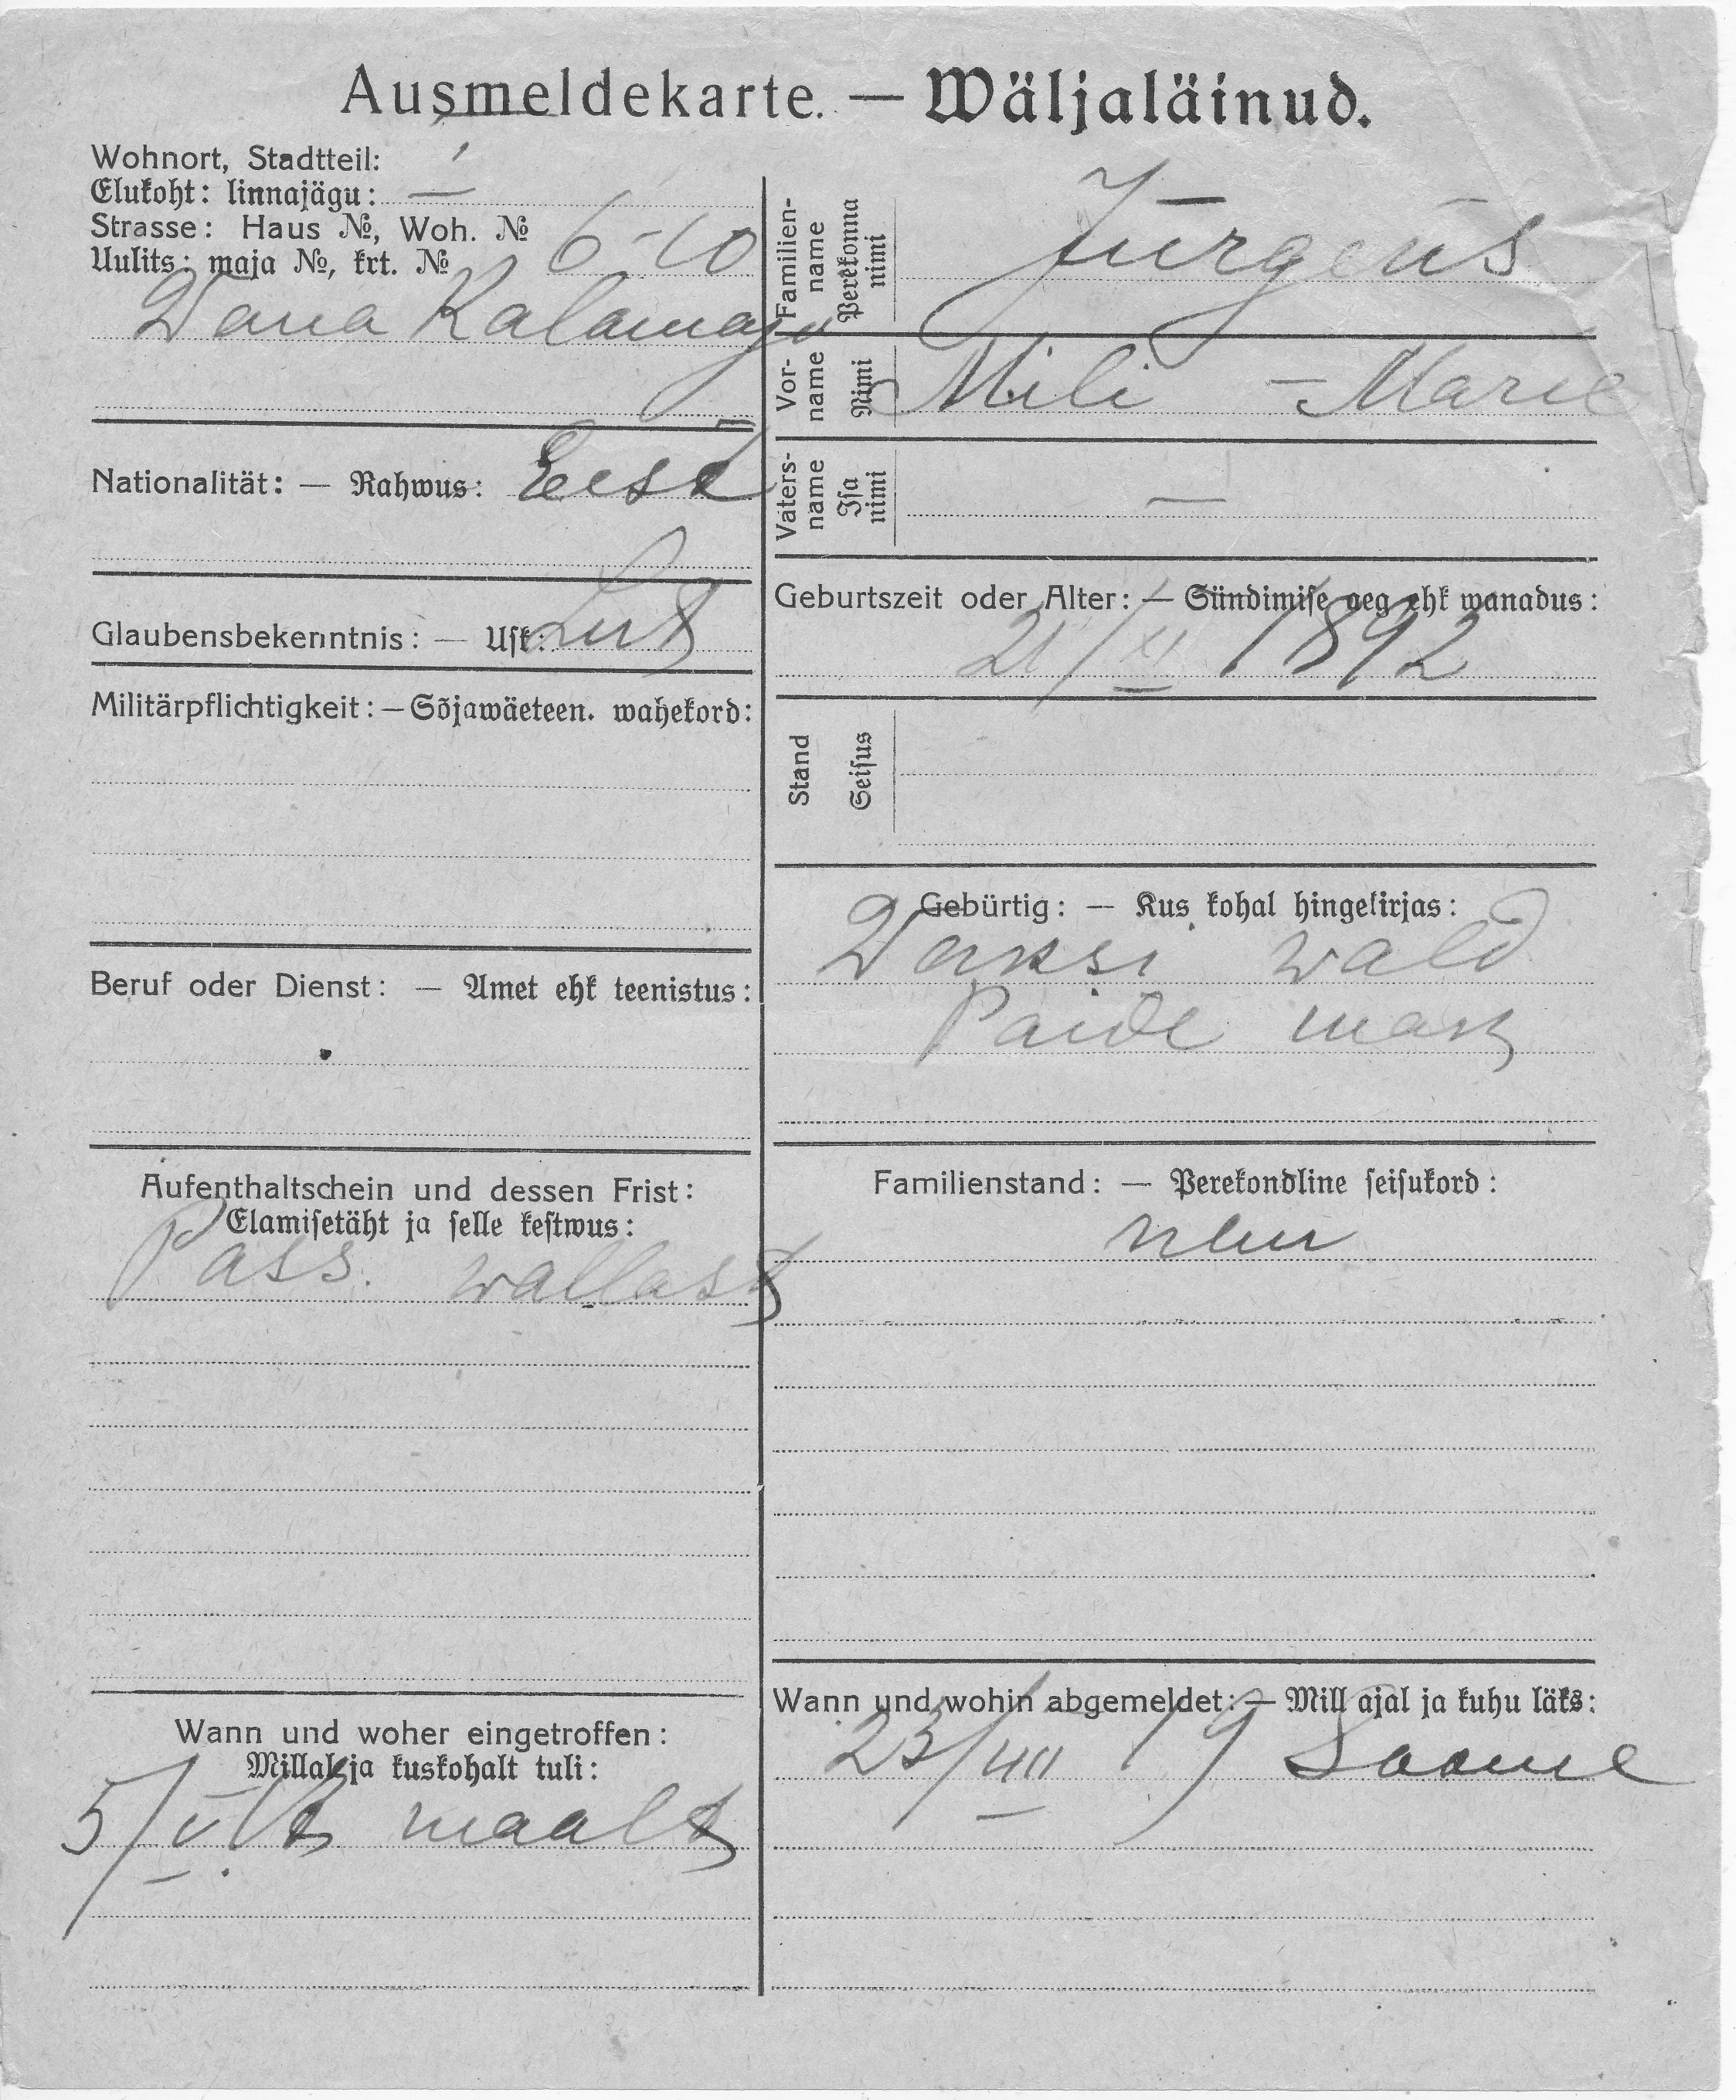 Ausmeldekarte. — Wäljaläinud.
Wohnort, Stadtteil:
Elukoht: linnajägu: I
Strasse: Haus №, Woh. №
Uulits: maja №, krt. № 6-10
Wana Kalamaja
Nationalität: — Rahwus: Eest
Glaubensbekenntnis: — Usk: Lut
Militärpflichtigkeit: — Sõjawäeteen. wahekord:
Beruf oder Dienst: — Amet ehk teenistus:
Aufenthaltschein und dessen Frist:
Elamisetäht ja selle kestwus:
Pass. wallast
Wann und woher eingetroffen:
Millal ja kuskohalt tuli:
5/V maalt
Familien-
name
Perekonna
nimi
Jürgens
Vor-
name
Nimi
Mili - Marie
Vaters-
name
Isa
nimi
—
Geburtszeit oder Alter: — Sündimise aeg ehk wanadus:
21/XI 1892
Stand
Seisus
Gebürtig: — Kus kohal hingekirjas:
wald
Paide
Familienstand: — Perekondline seisukord:
Wann und wohin abgemeldet: — Mill ajal ja kuhu läks:
23/VII 19 Soome